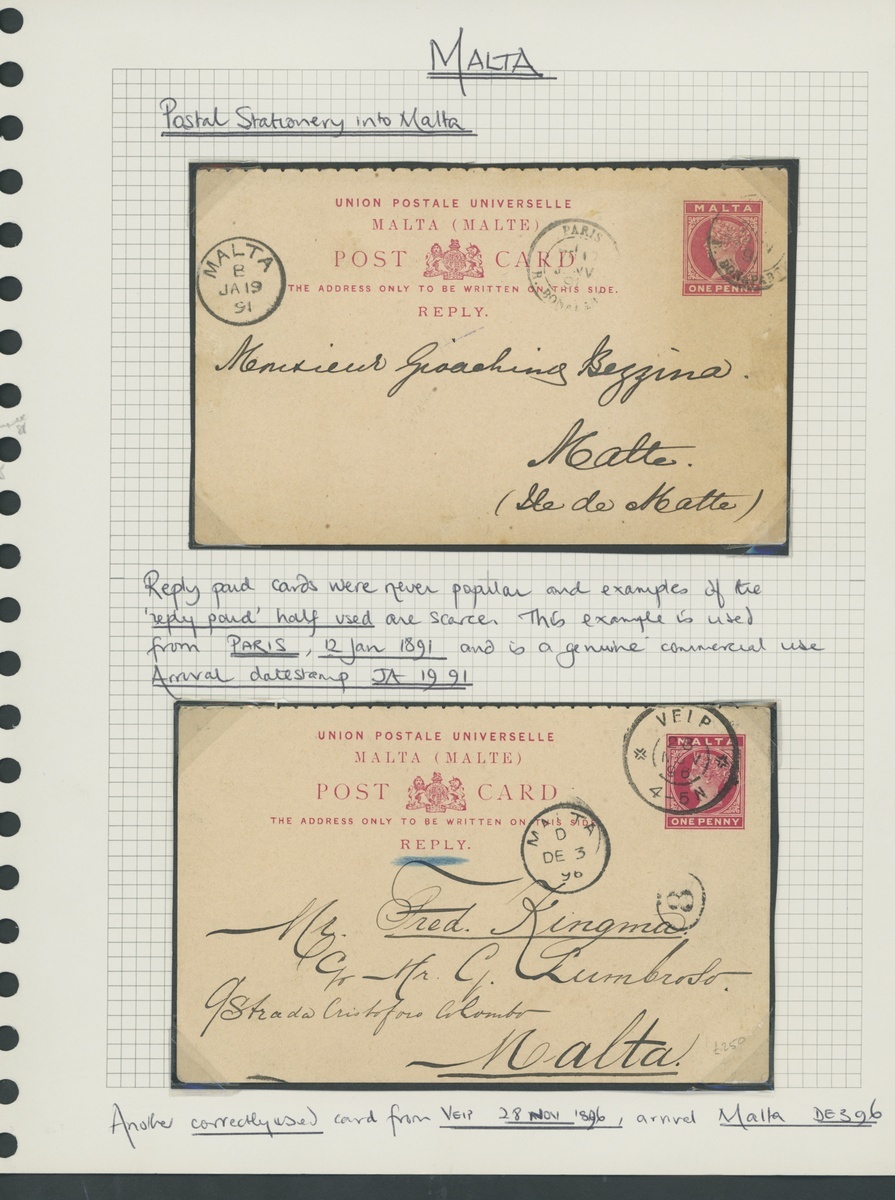 MALTA
Postal Stationery into Malta
UNION POSTALE UNIVERSELLE
MALTA (MALTE)
POST CARD
THE ADDRESS ONLY TO BE WRITTEN ON THIS SIDE.
REPLY.
MALTA
B
JA 19
91
PARIS
MALTA
ONE PENNY
Monsieur Gioaching Bezzina.
Malte.
(Ile de Malte)
Reply paid cards were never popular and examples of the
'reply paid' half used are scarce. This example is used
from PARIS, 12 Jan 1891 and is a genuine commercial use
Arrival datestamp JA 19 91
UNION POSTALE UNIVERSELLE
MALTA (MALTE)
POST CARD
THE ADDRESS ONLY TO BE WRITTEN ON THIS SIDE.
REPLY.
VEIP
4-5N
MALTA
ONE PENNY
MALTA
D
DE 3
96
8
Mr. Fred. Kingma.
c/o Mr. G. Lumbroso.
9 Strada Cristoforo Colombo
Malta.
£250
Another correctly used card from VEIP 28 NOV 1896, arrival Malta DE 3 96